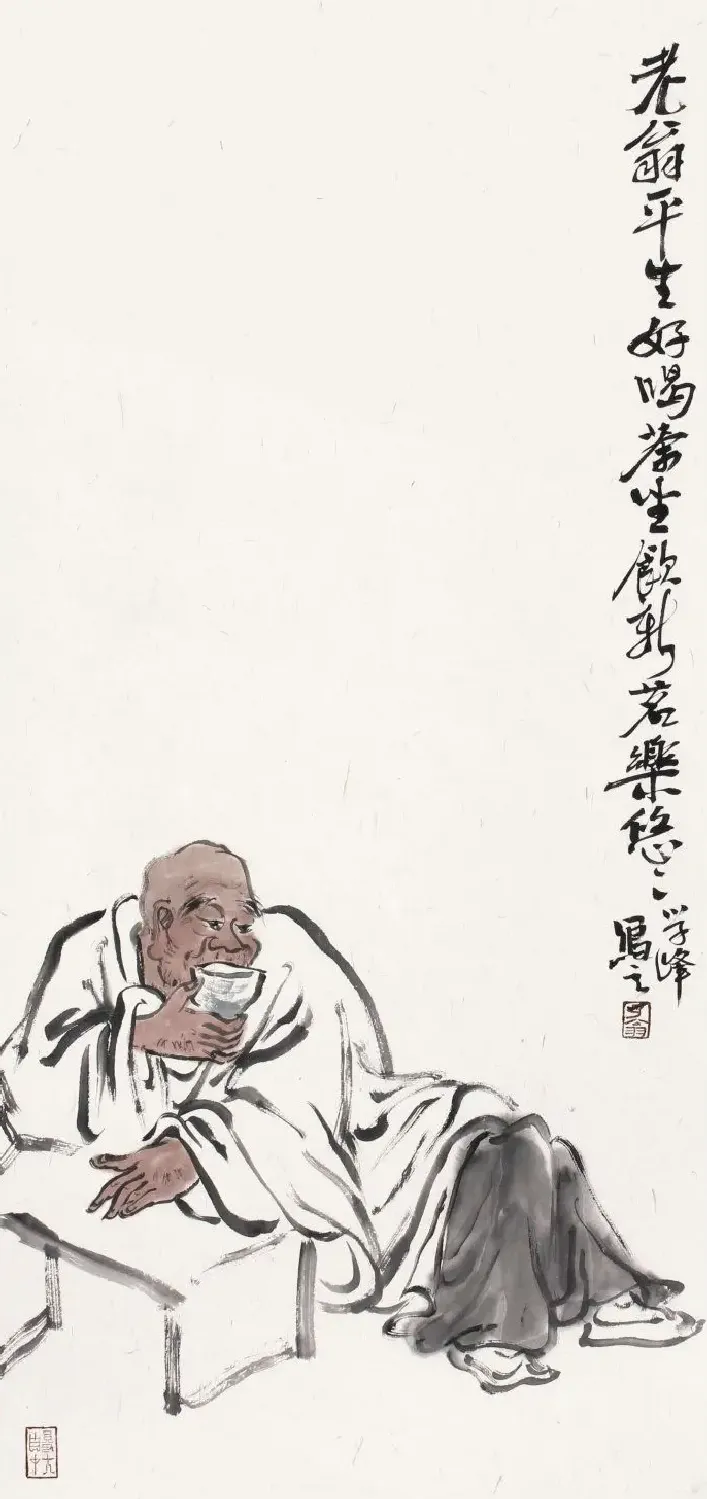 老翁平生好喝茶坐飲新茗樂悠〻
学峰
寫之